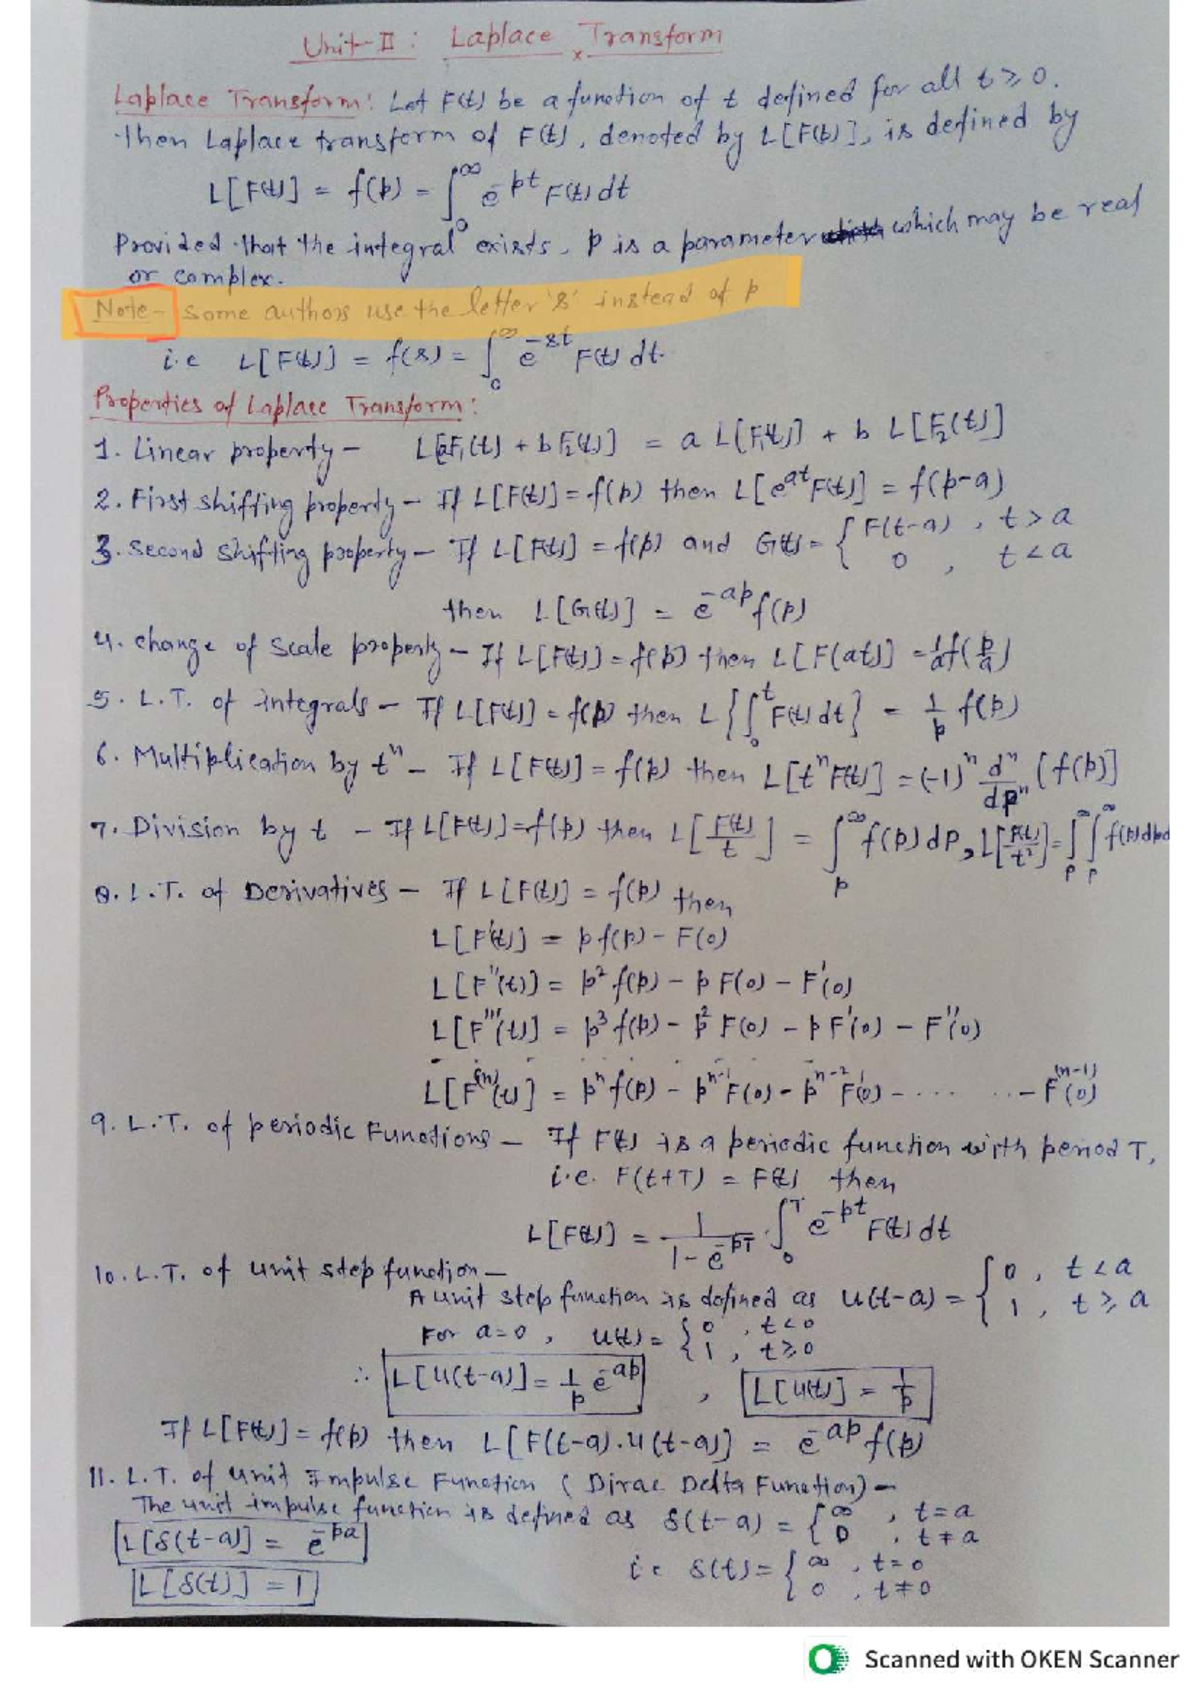 Unit-II : Laplace Transform
Laplace Transform: Let F(t) be a function of t defined for all t ≥ 0.
Then Laplace transform of F(t), denoted by L[F(t)], is defined by
L[F(t)] = f(p) = ∫₀^∞ e^{-pt} F(t) dt
Provided that the integral exists, p is a parameter which may be real
or complex.
Note- Some authors use the letter 's' instead of p
i.e L[F(t)] = f(s) = ∫₀^∞ e^{-st} F(t) dt.
Properties of Laplace Transform:
1. Linear property – L[aF₁(t) + bF₂(t)] = a L[F₁(t)] + b L[F₂(t)]
2. First shifting property – If L[F(t)] = f(p) then L[e^{at} F(t)] = f(p-a)
3. Second shifting property – If L[F(t)] = f(p) and G(t) = { F(t-a) , t > a
0 , t < a
then L[G(t)] = e^{-ap} f(p)
4. Change of scale property – If L[F(t)] = f(p) then L[F(at)] = 1/a f(p/a)
5. L.T. of integrals – If L[F(t)] = f(p) then L{∫₀^t F(t) dt} = 1/p f(p)
6. Multiplication by tⁿ – If L[F(t)] = f(p) then L[tⁿ F(t)] = (-1)ⁿ dⁿ/dpⁿ [f(p)]
7. Division by t – If L[F(t)] = f(p) then L[F(t)/t] = ∫_p^∞ f(p) dp, L[F(t)/t²] = ∫_p^∞ ∫_p^∞ f(p) dp dp
8. L.T. of Derivatives – If L[F(t)] = f(p) then
L[F'(t)] = p f(p) - F(0)
L[F''(t)] = p² f(p) - p F(0) - F'(0)
L[F'''(t)] = p³ f(p) - p² F(0) - p F'(0) - F''(0)
L[F^{(n)}(t)] = pⁿ f(p) - p^{n-1} F(0) - p^{n-2} F'(0) - .... ..- F^{(n-1)}(0)
9. L.T. of periodic Functions – If F(t) is a periodic function with period T,
i.e. F(t+T) = F(t) then
L[F(t)] = 1/(1 - e^{-pT}) ∫₀^T e^{-pt} F(t) dt
10. L.T. of unit step function –
A unit step function is defined as u(t-a) = { 0 , t < a
1 , t ≥ a
For a=0 , u(t) = { 0 , t < 0
1 , t ≥ 0
∴ L[u(t-a)] = 1/p e^{-ap} , L[u(t)] = 1/p
If L[F(t)] = f(p) then L[F(t-a).u(t-a)] = e^{-ap} f(p)
11. L.T. of unit Impulse Function ( Dirac Delta Function) –
The unit impulse function is defined as δ(t-a) = { ∞ , t = a
0 , t ≠ a
L[δ(t-a)] = e^{-pa}
i.e δ(t) = { ∞ , t = 0
0 , t ≠ 0
L[δ(t)] = 1
Scanned with OKEN Scanner